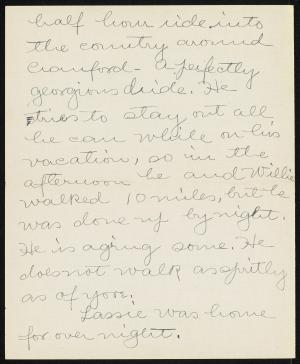 half hour ride into
the country around
Cranford - a perfectly
georgious dride. He
tries to stay out all
he can while on his
vacation, so in the
afternoon he and Willie
walked 10 miles, but he
was done up by night.
He is aging some. He
does not walk as spritly
as of yore.
Lassie was home
for over night.